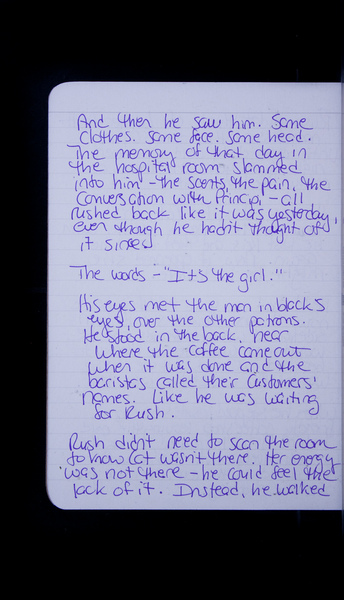 And then he saw him. Same
clothes. Same face. Same head.
The memory of that day in
the hospital room slammed
into him - the scents, the pain, the
conversation with Principi - all
rushed back like it was yesterday,
even though he hadn't thought of
it since.
The words - "It's the girl."
His eyes met the man in black's
eyes, over the other patrons.
He stood in the back, near
where the coffee came out
when it was done and the
baristas called their customers'
names. Like he was waiting
for Rush.
Rush didn't need to scan the room
to know Cat wasn't there. Her energy
was not there - he could feel the
lack of it. Instead, he walked